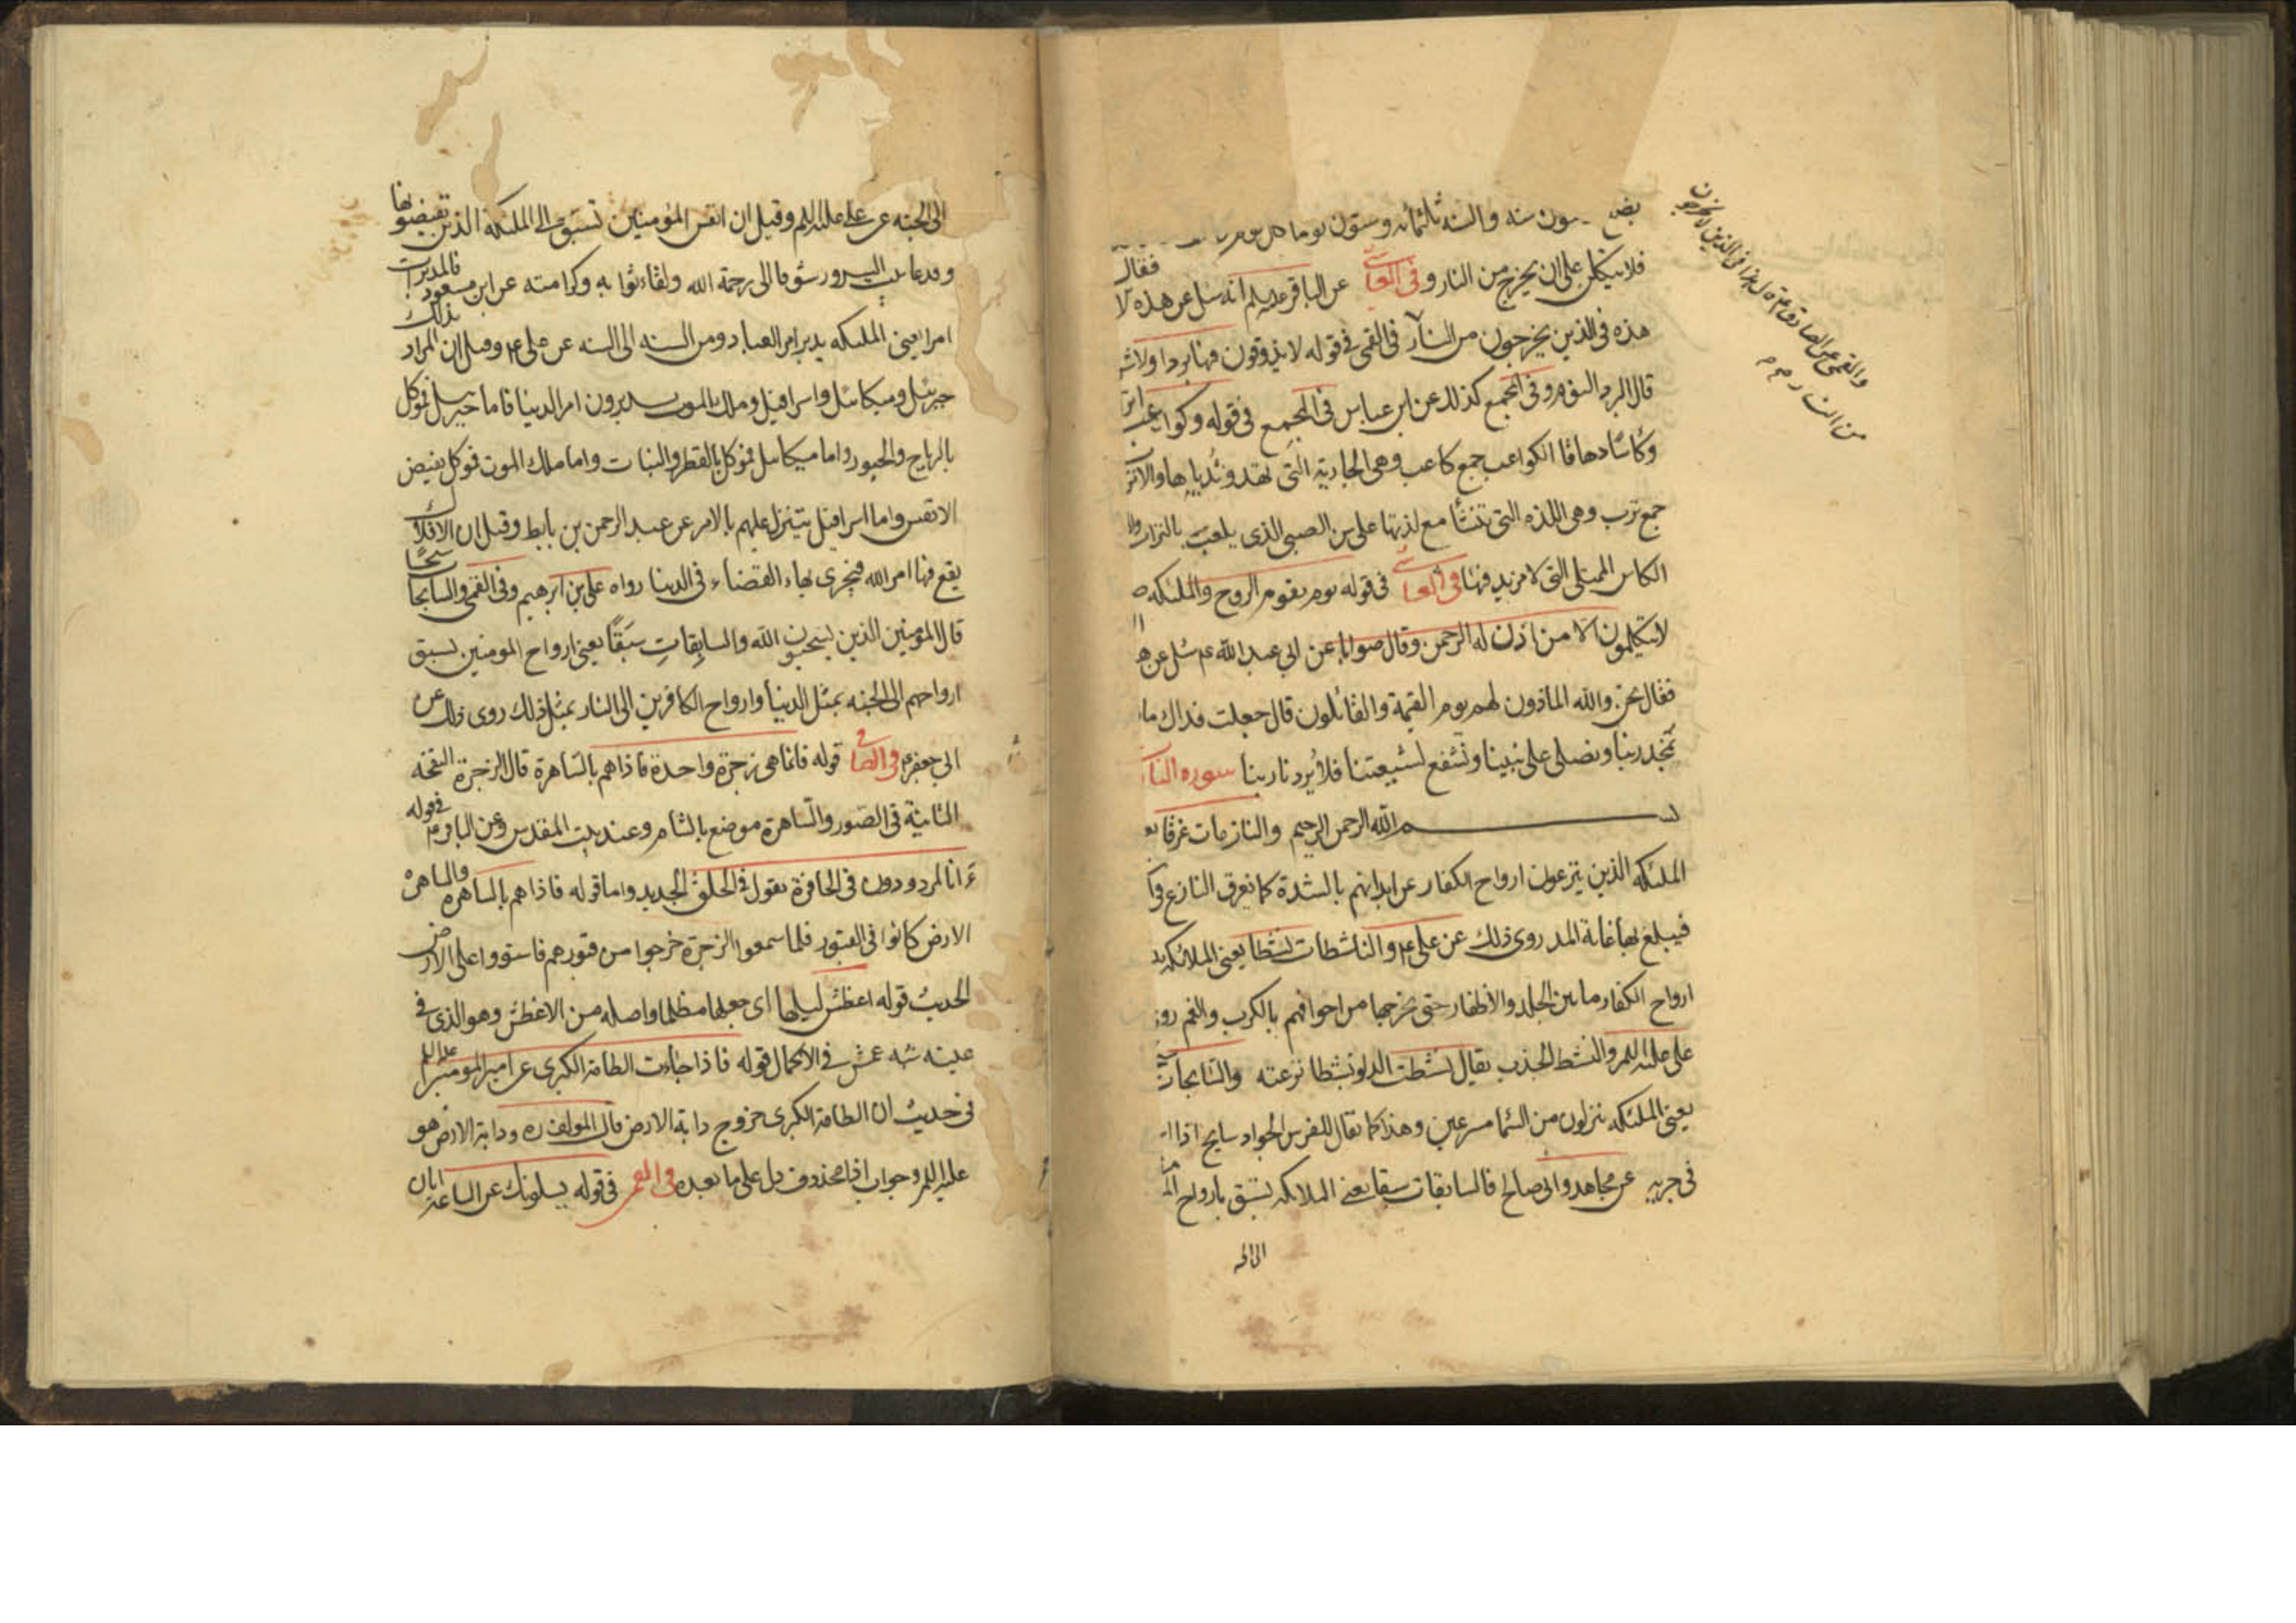 بضع ـسون سنه والسنه ثلثمائه وستون يوما كل يوم
فلا يتكلن على ان يخرج من النار وفى العياشى عن الباقر عليه سلم انه سئل عن هذه الا فقال
هذه فى الذين يخرجون من النار فى القمى فى قوله لا يذوقون فيها بردا ولا شر
قال البرد النوم وفى المجمع كذلك عن ابن عباس فى المجمع فى قوله وكواعب اتر
وكاسًا دهاقا الكواعب جمع كاعب وهى الجارية التى نهد ثدياها والاتر
جمع ترب وهى اللذه التى تنشأ مع لذتها على سن الصبى الذى يلعب بالتراب وا
الكاس الممتلى التى لا مزيد فيها وفى العياشى فى قوله يوم يقوم الروح والملئكه ص
لا يتكلمون الا من اذن له الرحمن وقال صوابا عن ابى عبد الله ع سئل عن ه
فقال نحن والله الماذون لهم يوم القيمة والقائلون قال جعلت فداك ما
نمجد ربنا ونصلى على نبينا ونشفع لشيعتنا فلا يردنا ربنا سوره النا
بسم الله الرحمن الرحيم والنازعات غرقا يع
الملئكه الذين ينزعون ارواح الكفار عن ابدانهم بالشدة كما يغرق النازع فى
فيبلغ بها غاية المد روى ذلك عن على ع والناشطات نشطا يعنى الملائكه
ارواح الكفار ما بين الجلد والاظفار حتى تخرجها من اجوافهم بالكرب والغم رو
على عليه السلم والنشط الجذب يقال نشطت الدلو نشطا نزعته والسابحات
يعنى الملئكه ينزلون من السما مسرعين وهذا كما يقال للفرس الجواد سابح اذا ا
فى جريه عن مجاهد وابى صالح فالسابقات سبقا يعنى الملائكه تسبق بارواح
الى الجنه
والقمى عن الصادق ع قال هذا فى الذين لا يخرجون
من النار
الى الجنه عن على عليه السلم وقيل ان انفس المؤمنين تسبق الى الملئكة الذين يقبضونها
وقد عاينت السرور شوقا الى رحمة الله ولقاء ثوابه وكرامته عن ابن مسعود فالمدبرات
امرا يعنى الملئكه يدبر امر العباد ومن السنه الى السنه عن على ع وقيل ان المراد بذلك
جبرئيل وميكائيل واسرافيل وملك الموت يدبرون امر الدنيا فاما جبرئيل فموكل
بالرياح والجنود واما ميكائيل فموكل بالقطر والنبات واما ملك الموت فموكل بقبض
الانفس واما اسرافيل يتنزل عليهم بالامر عن عبد الرحمن بن بابط وقيل ان الافلاك
يقع فيها امر الله فيجرى بهاء القضاء فى الدنيا رواه على بن ابرهيم وفى القمى والسابحات سبحًا
قال المؤمنين الذين يسبحون الله والسابِقاتِ سَبَقًا يعنى ارواح المومنين لسبق
ارواحهم الى الجنه بمثل الدنيا وارواح الكافرين الى النار بمثل ذلك روى ذلك عن
ابى جعفر ع فى الصافى قوله فانما هى زجرة واحدة فاذا هم بالساهرة قال الزجرة النفخه
الثانيَة فى الصّور والساهرة موضع بالشام وعند بيت المقدس وعن الباقر ع فى قوله
ءَانا لمردودون فى الحافرة يقول فى الخلق الجديد واما قوله فاذا هم بالساهره والساهرة
الارض كانوا فى القبور فلما سمعوا الزجرة خرجوا من قبورهم فاستووا على الارض
الحديث قوله اغطش ليلها اى جعلها مظلما واصله من الاغطش وهو الذى فى
عينه شبه عمش فى الاكمال قوله فاذا جاءت الطامة الكبرى عن امير المومنين عليه السلم
فى حديث ان الطامة الكبرى خروج دابة الارض قال المولف ره ودابة الارض هو
عليه السلم وجواب اذا محذوف دل على ما بعده فى القمى فى قوله يسلونك عن الساعة ايان